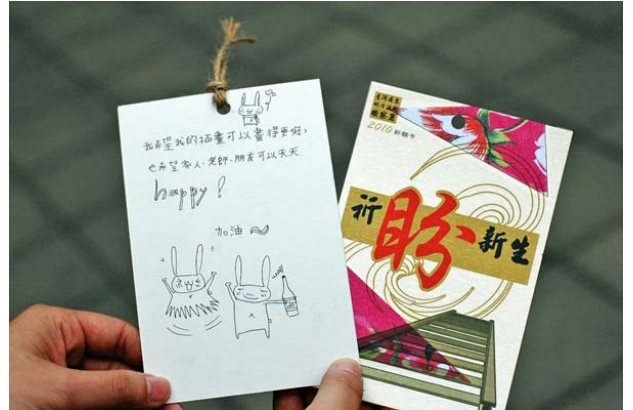 我希望我的插畫可以畫得更好，
也希望家人、老師、朋友可以天天
happy!
加油
2010祈願卡
祈盼新生